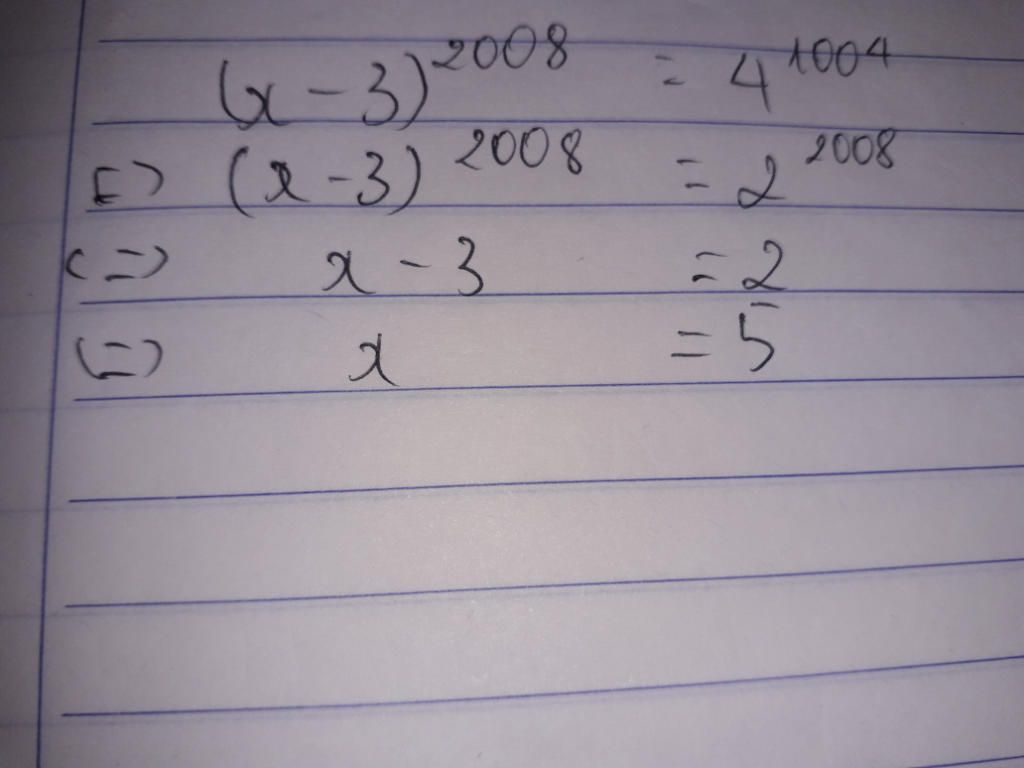 (x - 3)^2008 = 4^1004
=> (x - 3)^2008 = 2^2008
<=> x - 3 = 2
<=> x = 5